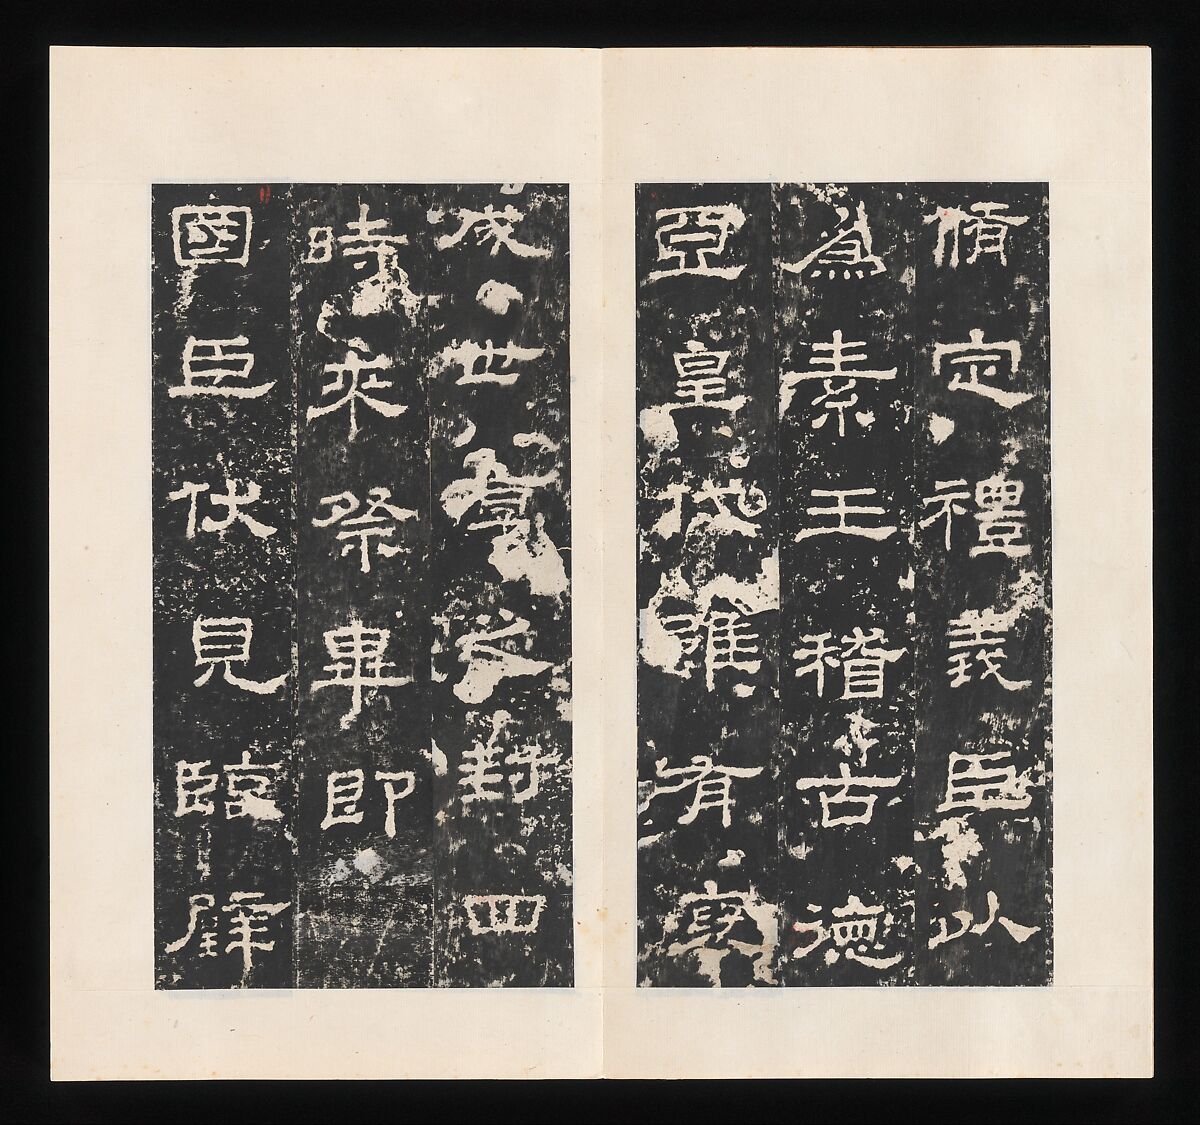 脩定禮義臣以
爲素王稽古德
亞皇代雖有褒
成世享之封四
時來祭畢即
國臣伏見臨辟